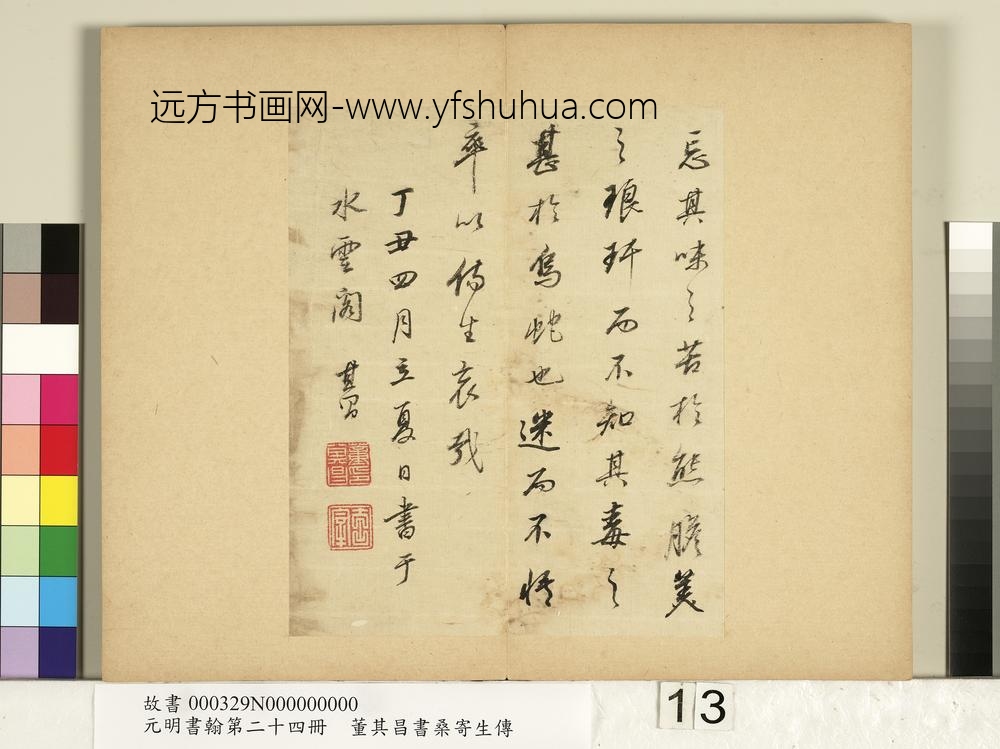 远方书画网-www.yfshuhua.com
忘其味之苦於熊膽美
之琅玕而不知其毒之
甚於烏蛇也迷而不悟
卒以傷生哀哉
丁丑四月立夏日書于
水雲閣 其昌
董其昌印
故書 000329N000000000
元明書翰第二十四冊 董其昌書桑寄生傳
13